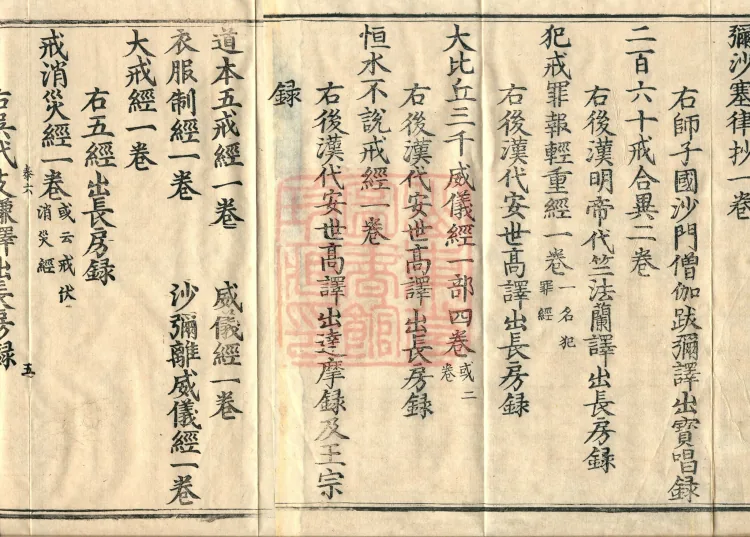 彌沙塞律抄一卷
右師子國沙門僧伽跋彌譯出寶唱録
二百六十戒合異二卷
右後漢明帝代竺法蘭譯出長房録
犯戒罪報輕重經一卷一名犯罪經
右後漢代安世髙譯出長房録
大比丘三千威儀經一部四卷或二卷
右後漢代安世髙譯出長房録
恒水不說戒經一卷
右後漢代安世髙譯出達摩録及王宗
録
道本五戒經一卷 威儀經一卷
衣服制經一卷 沙彌離威儀經一卷
大戒經一卷
右五經出長房録
戒消災經一卷或云戒伏消災經
五
右吳代支謙譯出長房録